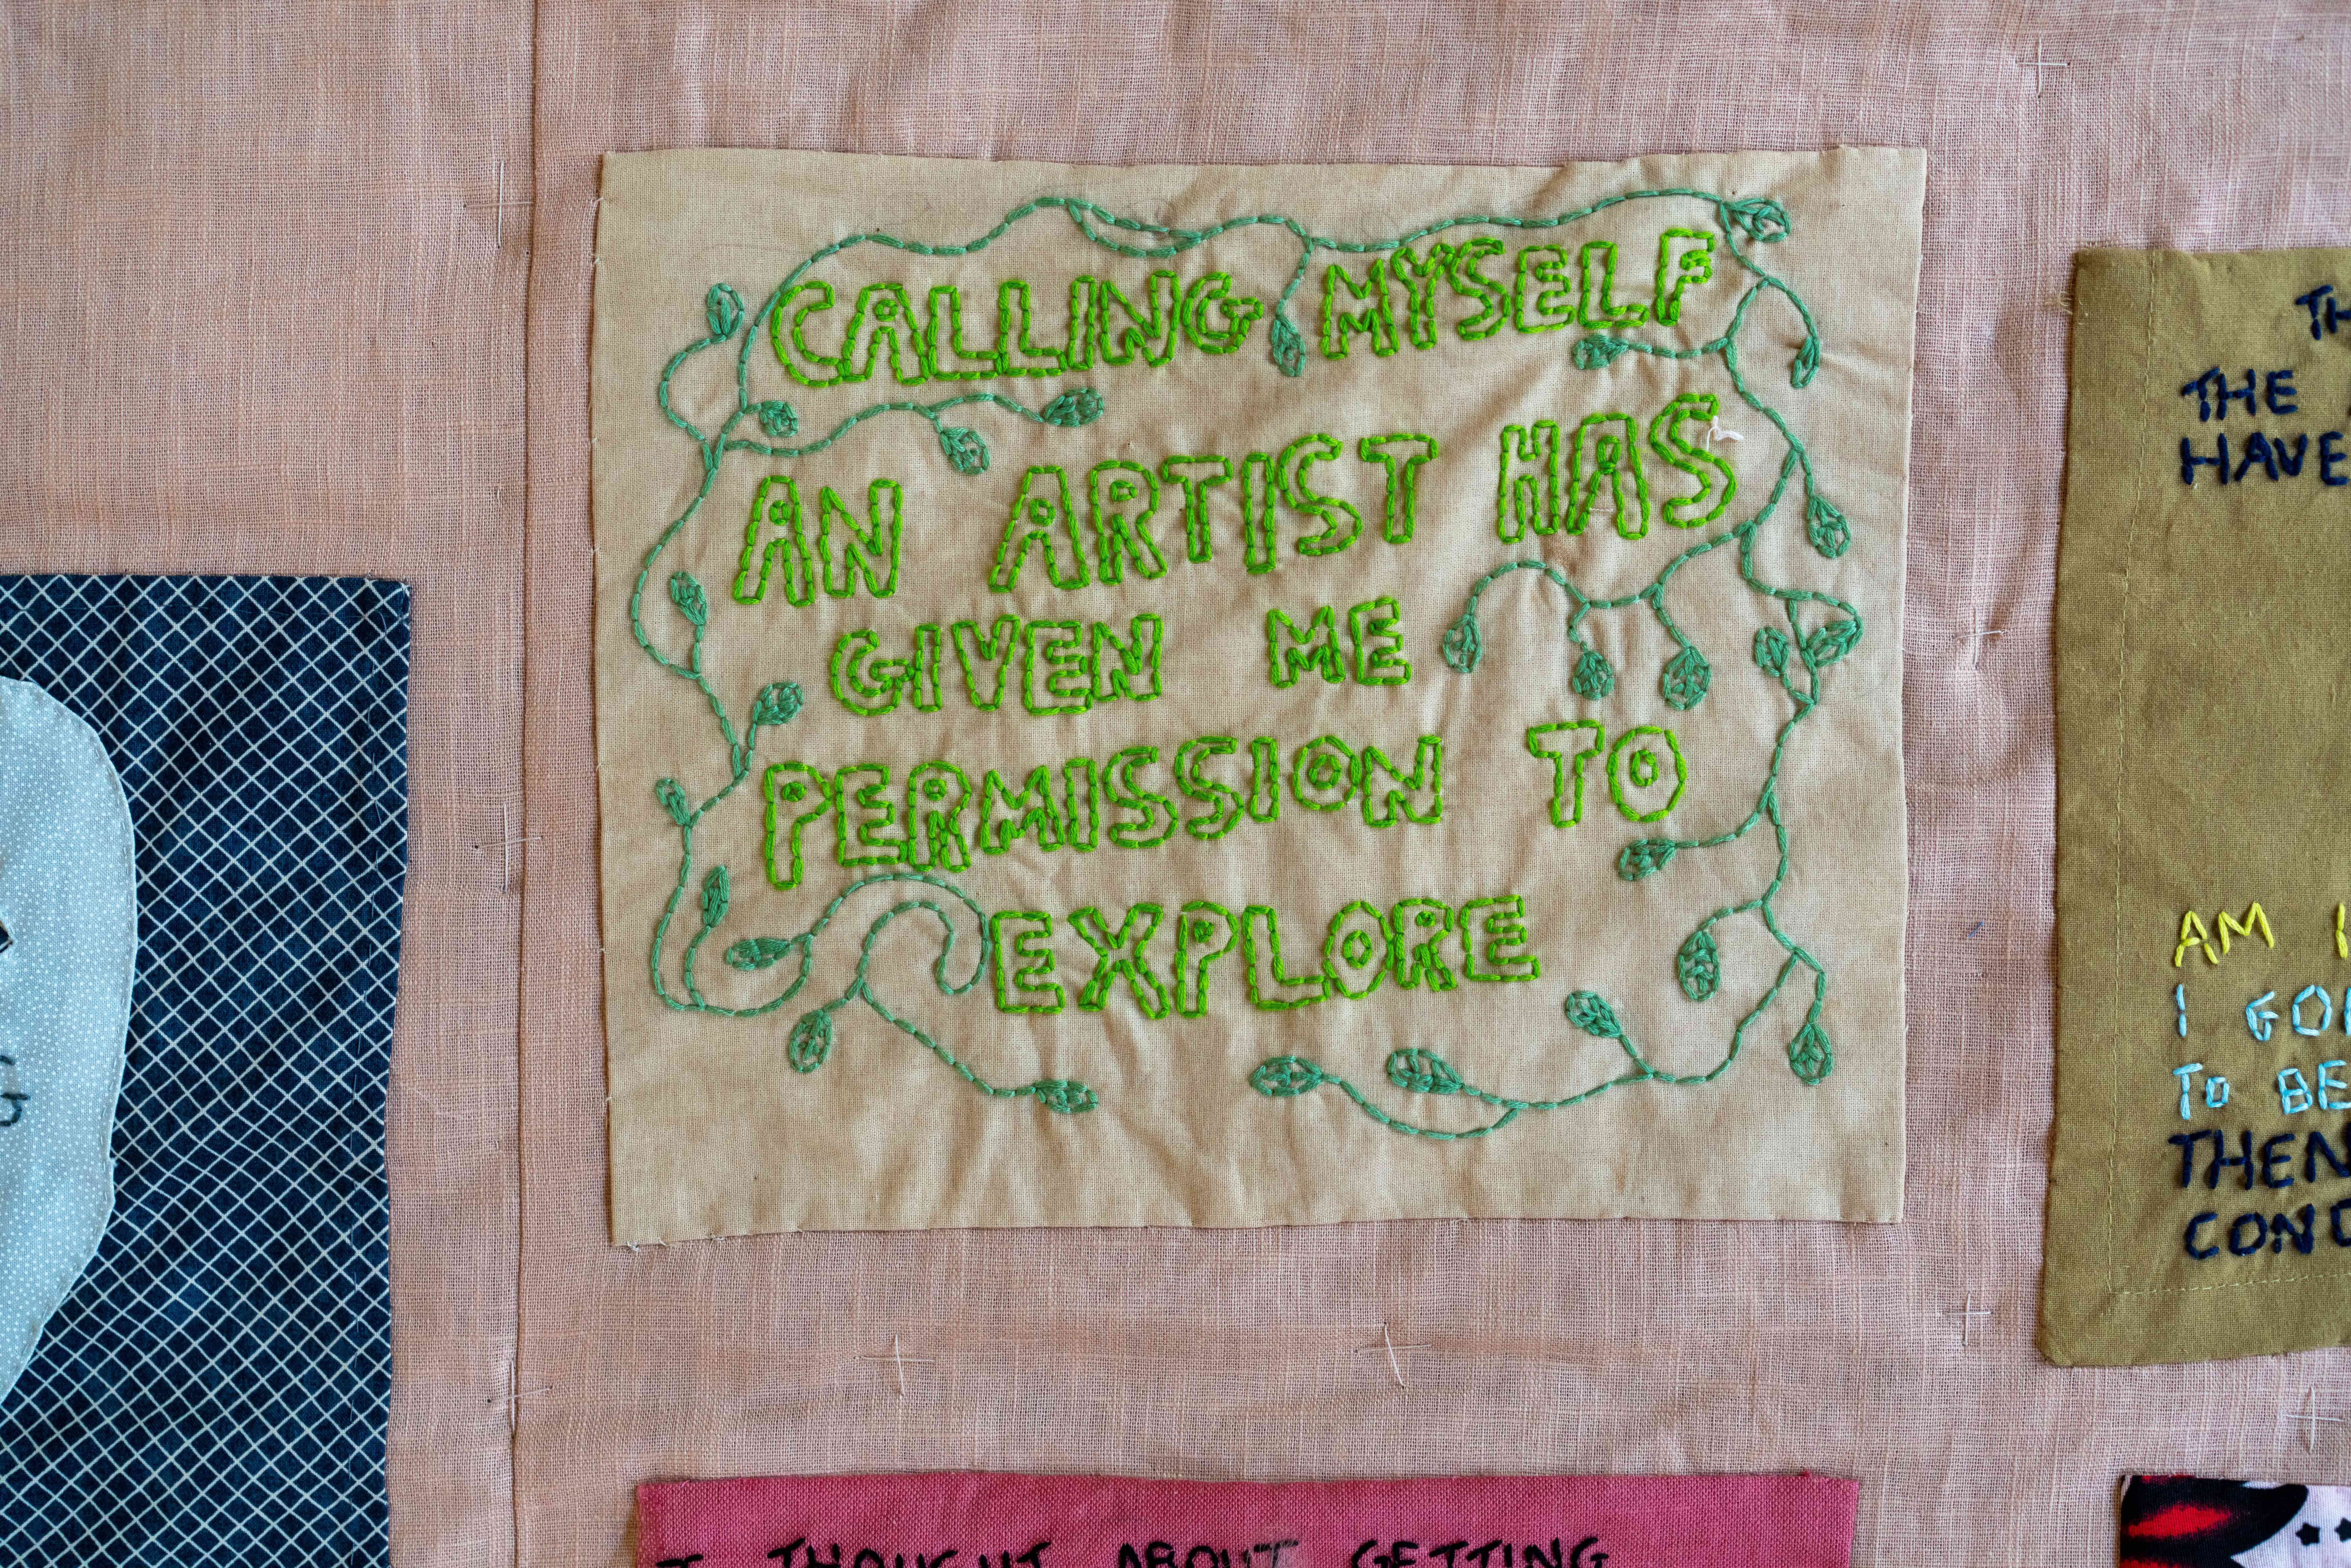 CALLING MYSELF
AN ARTIST HAS
GIVEN ME
PERMISSION TO
EXPLORE
THE
HAVE
AM I
I
TO BE
THEN
I THOUGHT ABOUT GETTING